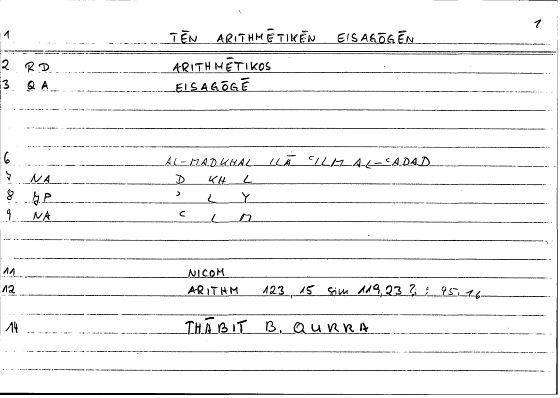 1
1 TĒN ARITHMĒTIKĒN EISAGŌGĒN
2 RD ARITHMĒTIKOS
3 QA EISAGŌGĒ
6 AL-MADKHAL ILĀ ʿILM AL-ʿADAD
7 NA D KH L
8 P ʾ L Y
9 NA ʿ L M
11 NICOM
12 ARITHM 123, 15 sim 119, 23 : 95, 16
14 THĀBIT B. QURRA